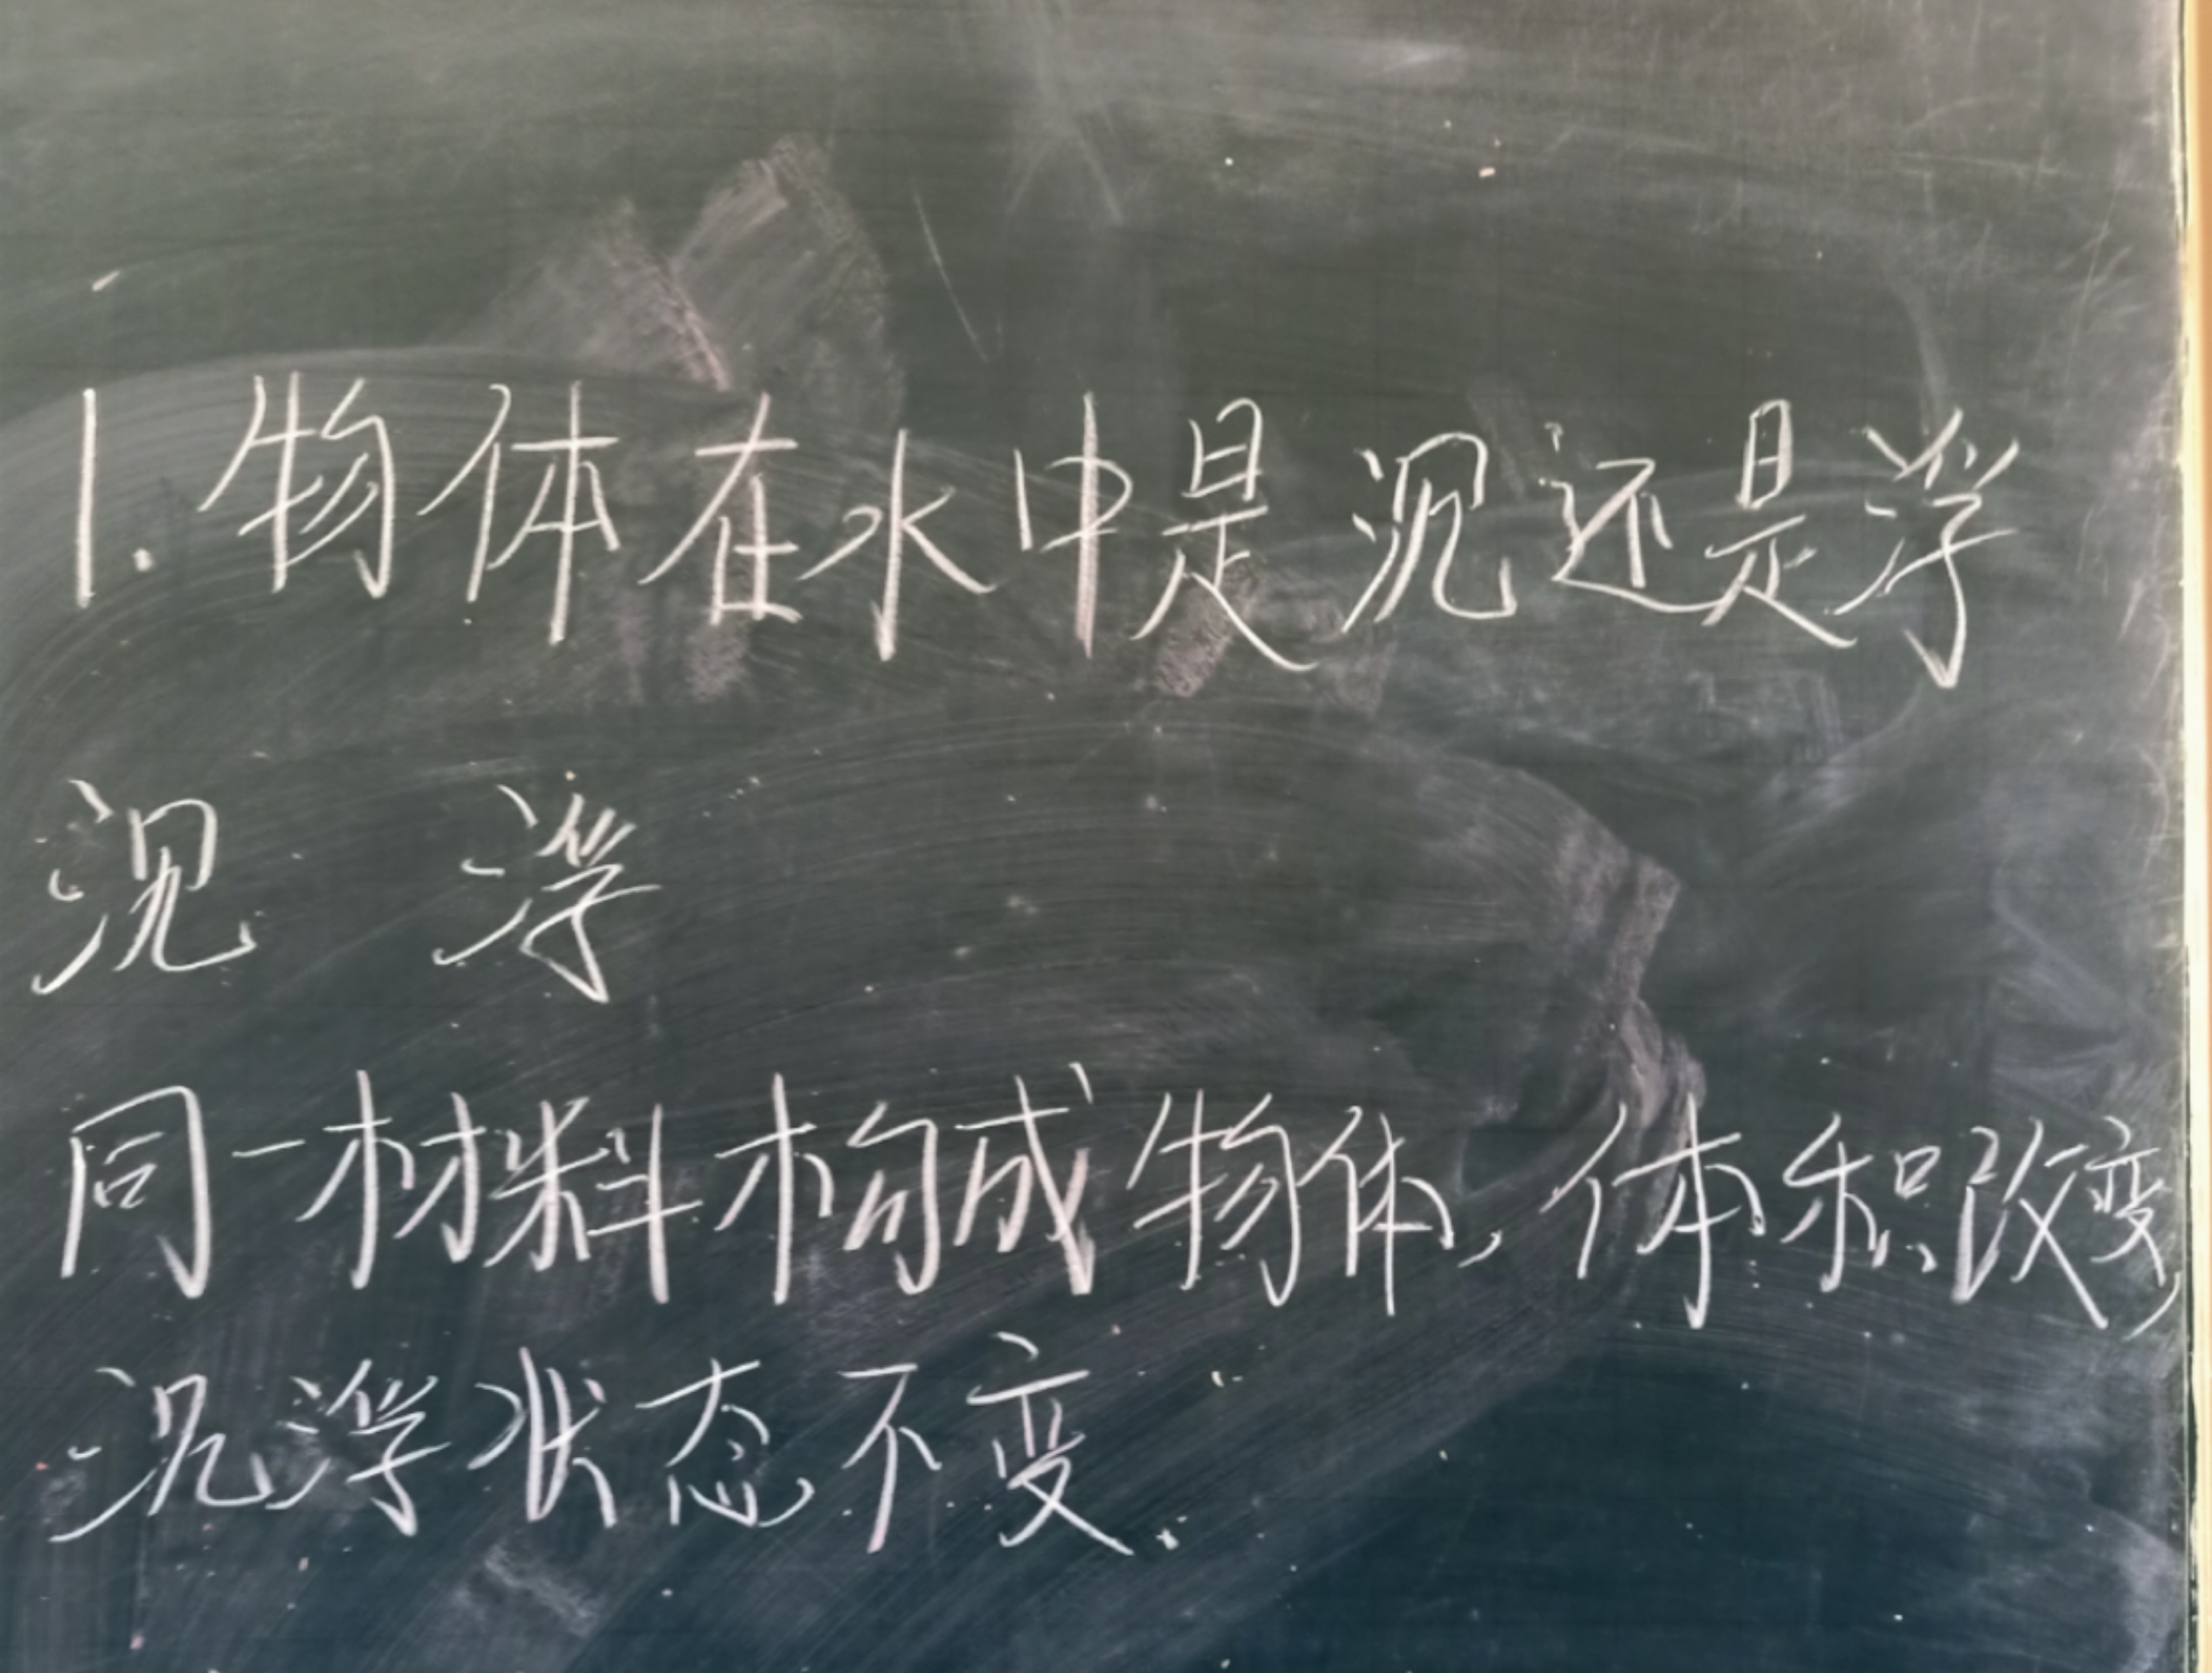 1.物体在水中是沉还是浮
沉 浮
同一材料构成物体,体积改变,
沉浮状态不变.